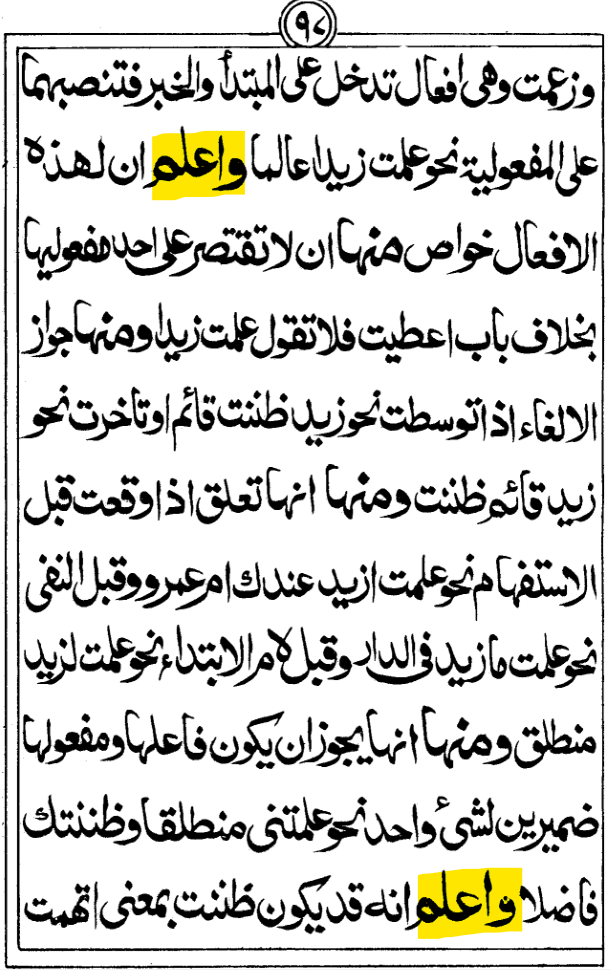 ٩٨
وزعمت وهى افعال تدخل على المبتدأ والخبر فتنصبهما
على المفعولية نحو علمت زيدا عالما واعلم ان لهذه
الافعال خواص منها ان لا تقتصر على احد مفعوليها
بخلاف باب اعطيت فلا تقول علمت زيدا ومنها جواز
الالغاء اذا توسطت نحو زيد ظننت قائم او تاخرت نحو
زيد قائم ظننت ومنها انها تعلق اذا وقعت قبل
الاستفهام نحو علمت ازيد عندك ام عمرو وقبل النفى
نحو علمت ما زيد فى الدار وقبل لام الابتداء نحو علمت لزيد
منطلق ومنها انها يجوز ان يكون فاعلها ومفعولها
ضميرين لشئ واحد نحو علمتنى منطلقا وظننتك
فاضلا واعلم انه قد يكون ظننت بمعنى اتهمت